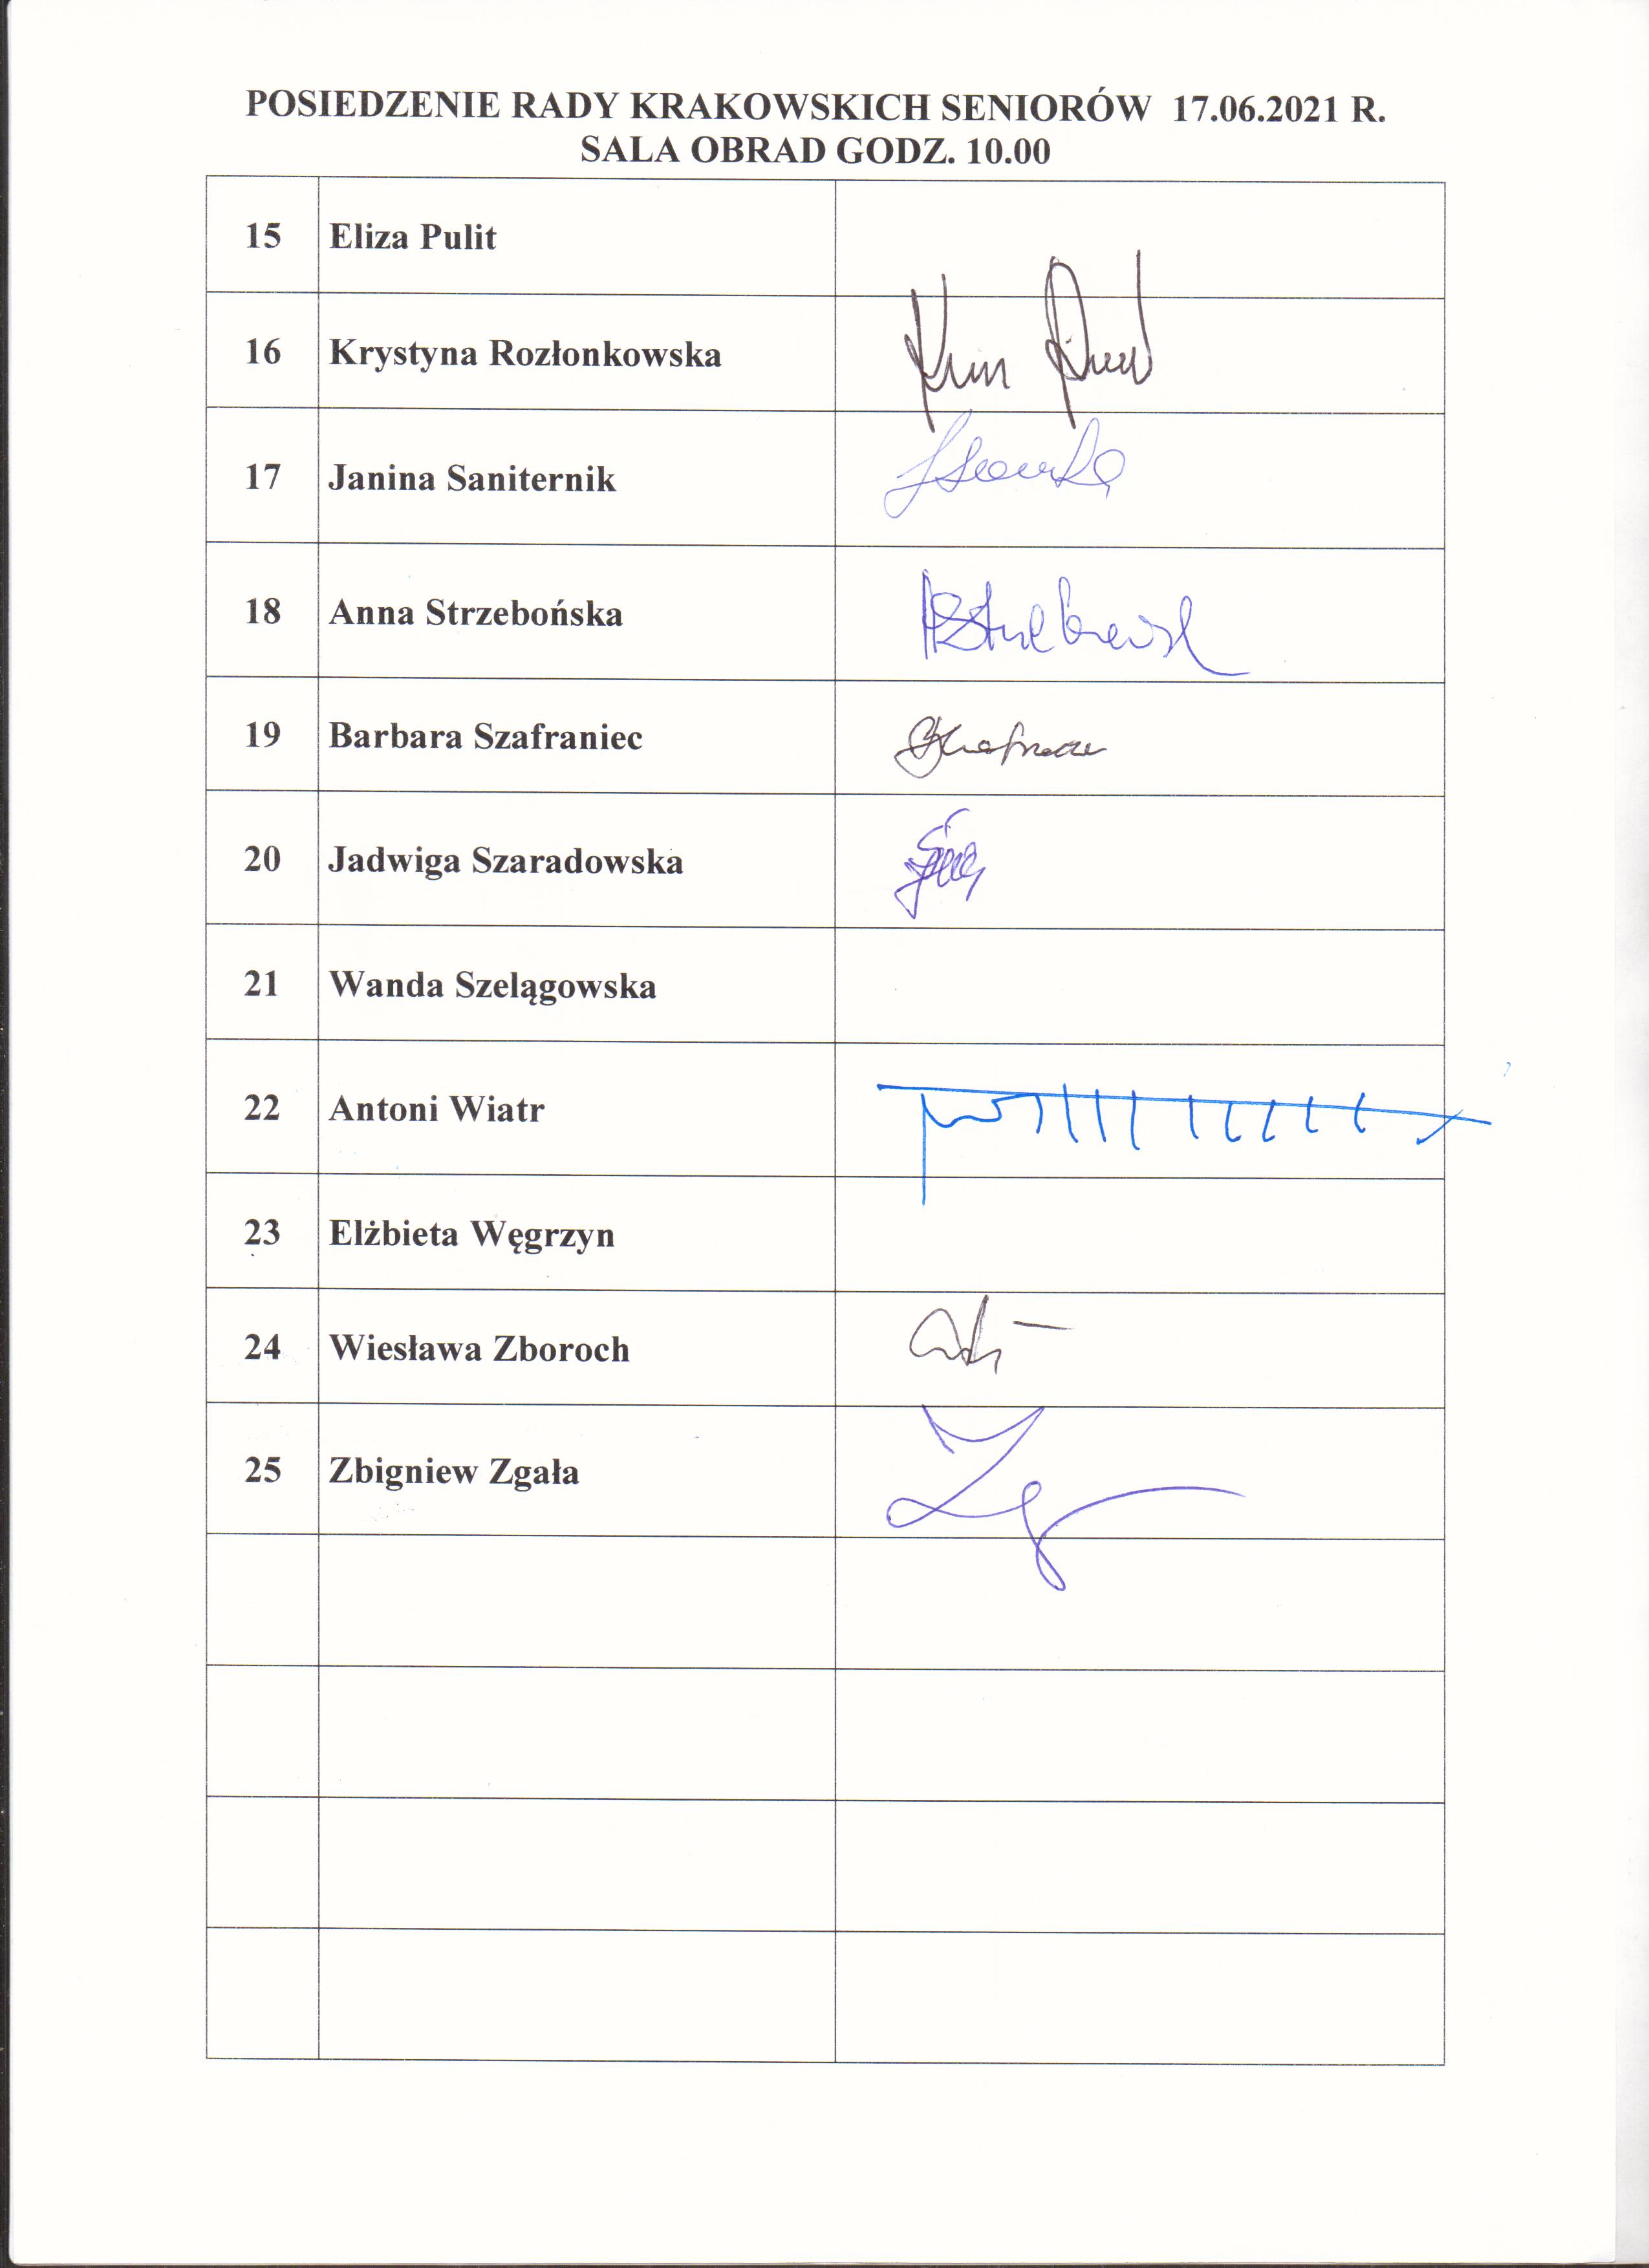 POSIEDZENIE RADY KRAKOWSKICH SENIORÓW 17.06.2021 R.
SALA OBRAD GODZ. 10.00
15 Eliza Pulit
16 Krystyna Rozłonkowska
17 Janina Saniternik
18 Anna Strzebońska
19 Barbara Szafraniec
20 Jadwiga Szaradowska
21 Wanda Szelągowska
22 Antoni Wiatr
23 Elżbieta Węgrzyn
24 Wiesława Zboroch
25 Zbigniew Zgała